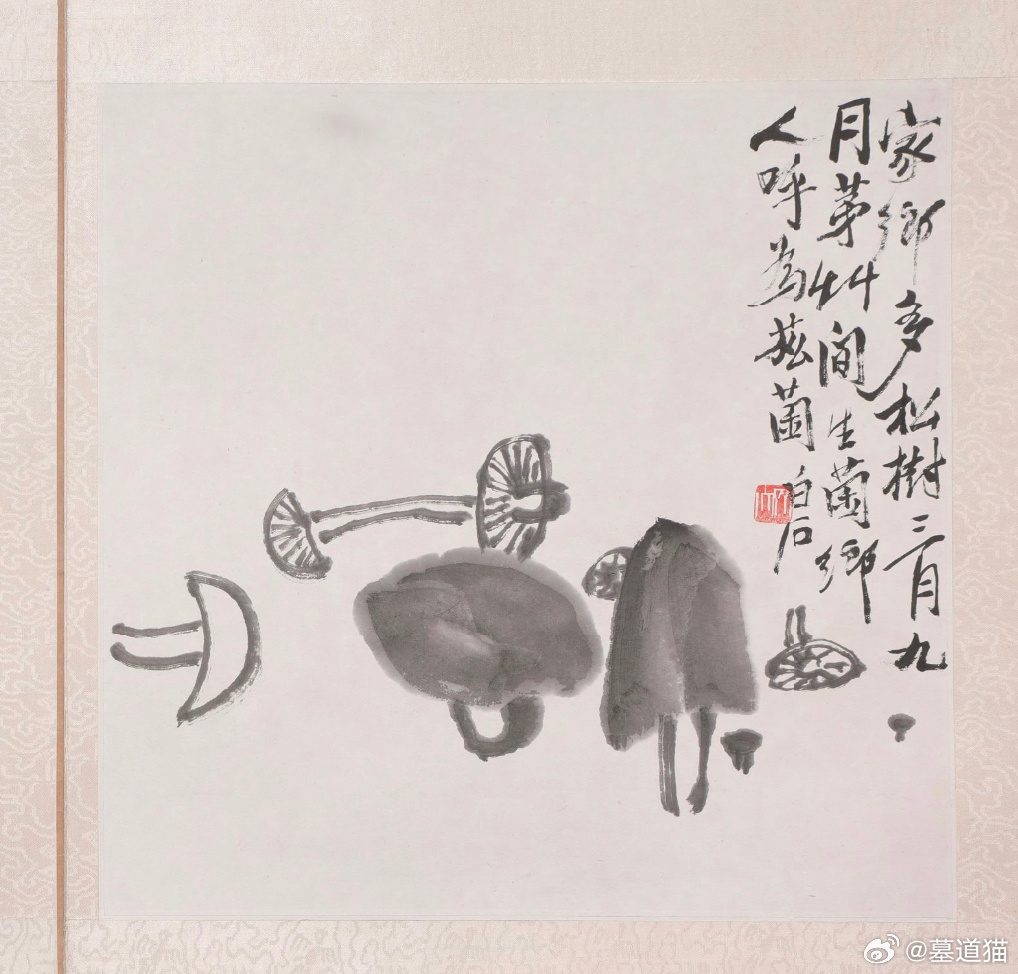 家鄉多松樹三月九
月茅艸間生菌鄉
人呼為菘菌 白石
@墓道猫